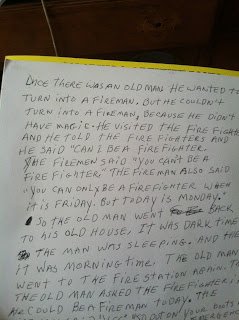 ONCE THERE WAS AN OLD MAN HE WANTED TO
TURN INTO A FIREMAN. BUT HE COULDN'T
TURN INTO A FIREMAN, BECAUSE HE DIDN'T
HAVE MAGIC. HE VISITED THE FIRE FIGHTERS
AND HE TOLD THE FIRE FIGHTERS AND
HE SAID "CAN I BE A FIREFIGHTER.
THE FIREMEN SAID "YOU CAN'T BE A
FIREFIGHTER." THE FIREMAN ALSO SAID
"YOU CAN ONLY BE A FIREFIGHTER WHEN
IT IS FRIDAY. BUT TODAY IS MONDAY."
SO THE OLD MAN WENT BACK
TO HIS OLD HOUSE. IT WAS DARK TIME
THE MAN WAS SLEEPING. AND THE
IT WAS MORNING TIME. THE OLD MAN
WENT TO THE FIRE STATION AGAIN.
THE OLD MAN ASKED THE FIREFIGHTER
HE COULD BE A FIREMAN TODAY. THE
ON YOUR BOOTS